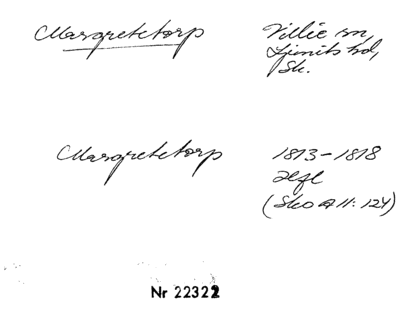 Margretetorp
Villie sn,
Ljunits hd,
Sk.
Margretetorp
1813-1818
Hfl
(Sko A II: 124)
Nr 22322